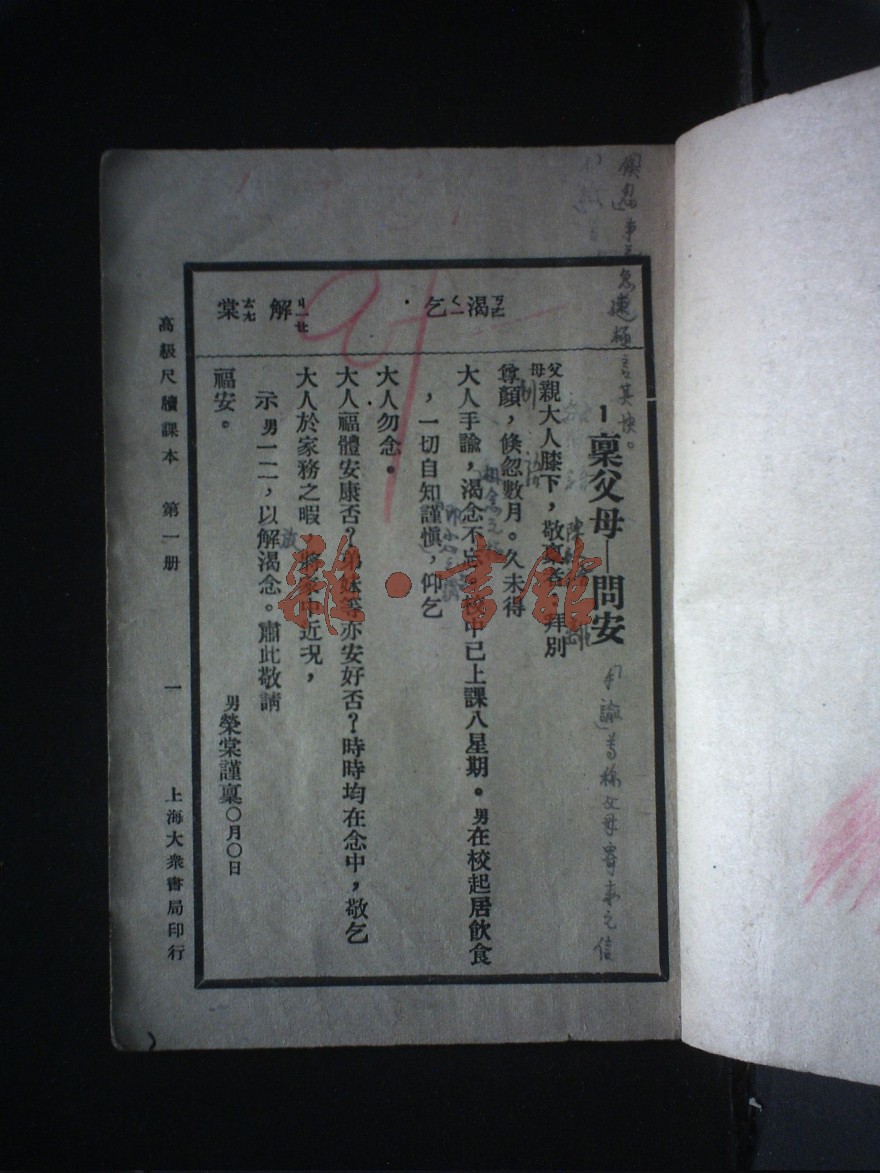 1 稟父母—問安
父母親大人膝下，敬稟者，拜別
尊顏，倏忽數月。久未得
大人手諭，渴念不忘。校中已上課八星期。男在校起居飲食
，一切自知謹愼，仰乞
大人勿念。
大人福體安康否？弟妹等亦安好否？時時均在念中，敬乞
大人於家務之暇，將家中近況，
示男一二，以解渴念。肅此敬請
福安。
男榮棠謹稟〇月〇日
渴ㄎㄜ
乞ㄑㄧ
解ㄐㄧㄝ
棠ㄊㄤ
高級尺牘課本 第一册
一
上海大衆書局印行
手諭爲稱父母寄來之信
雜·書館